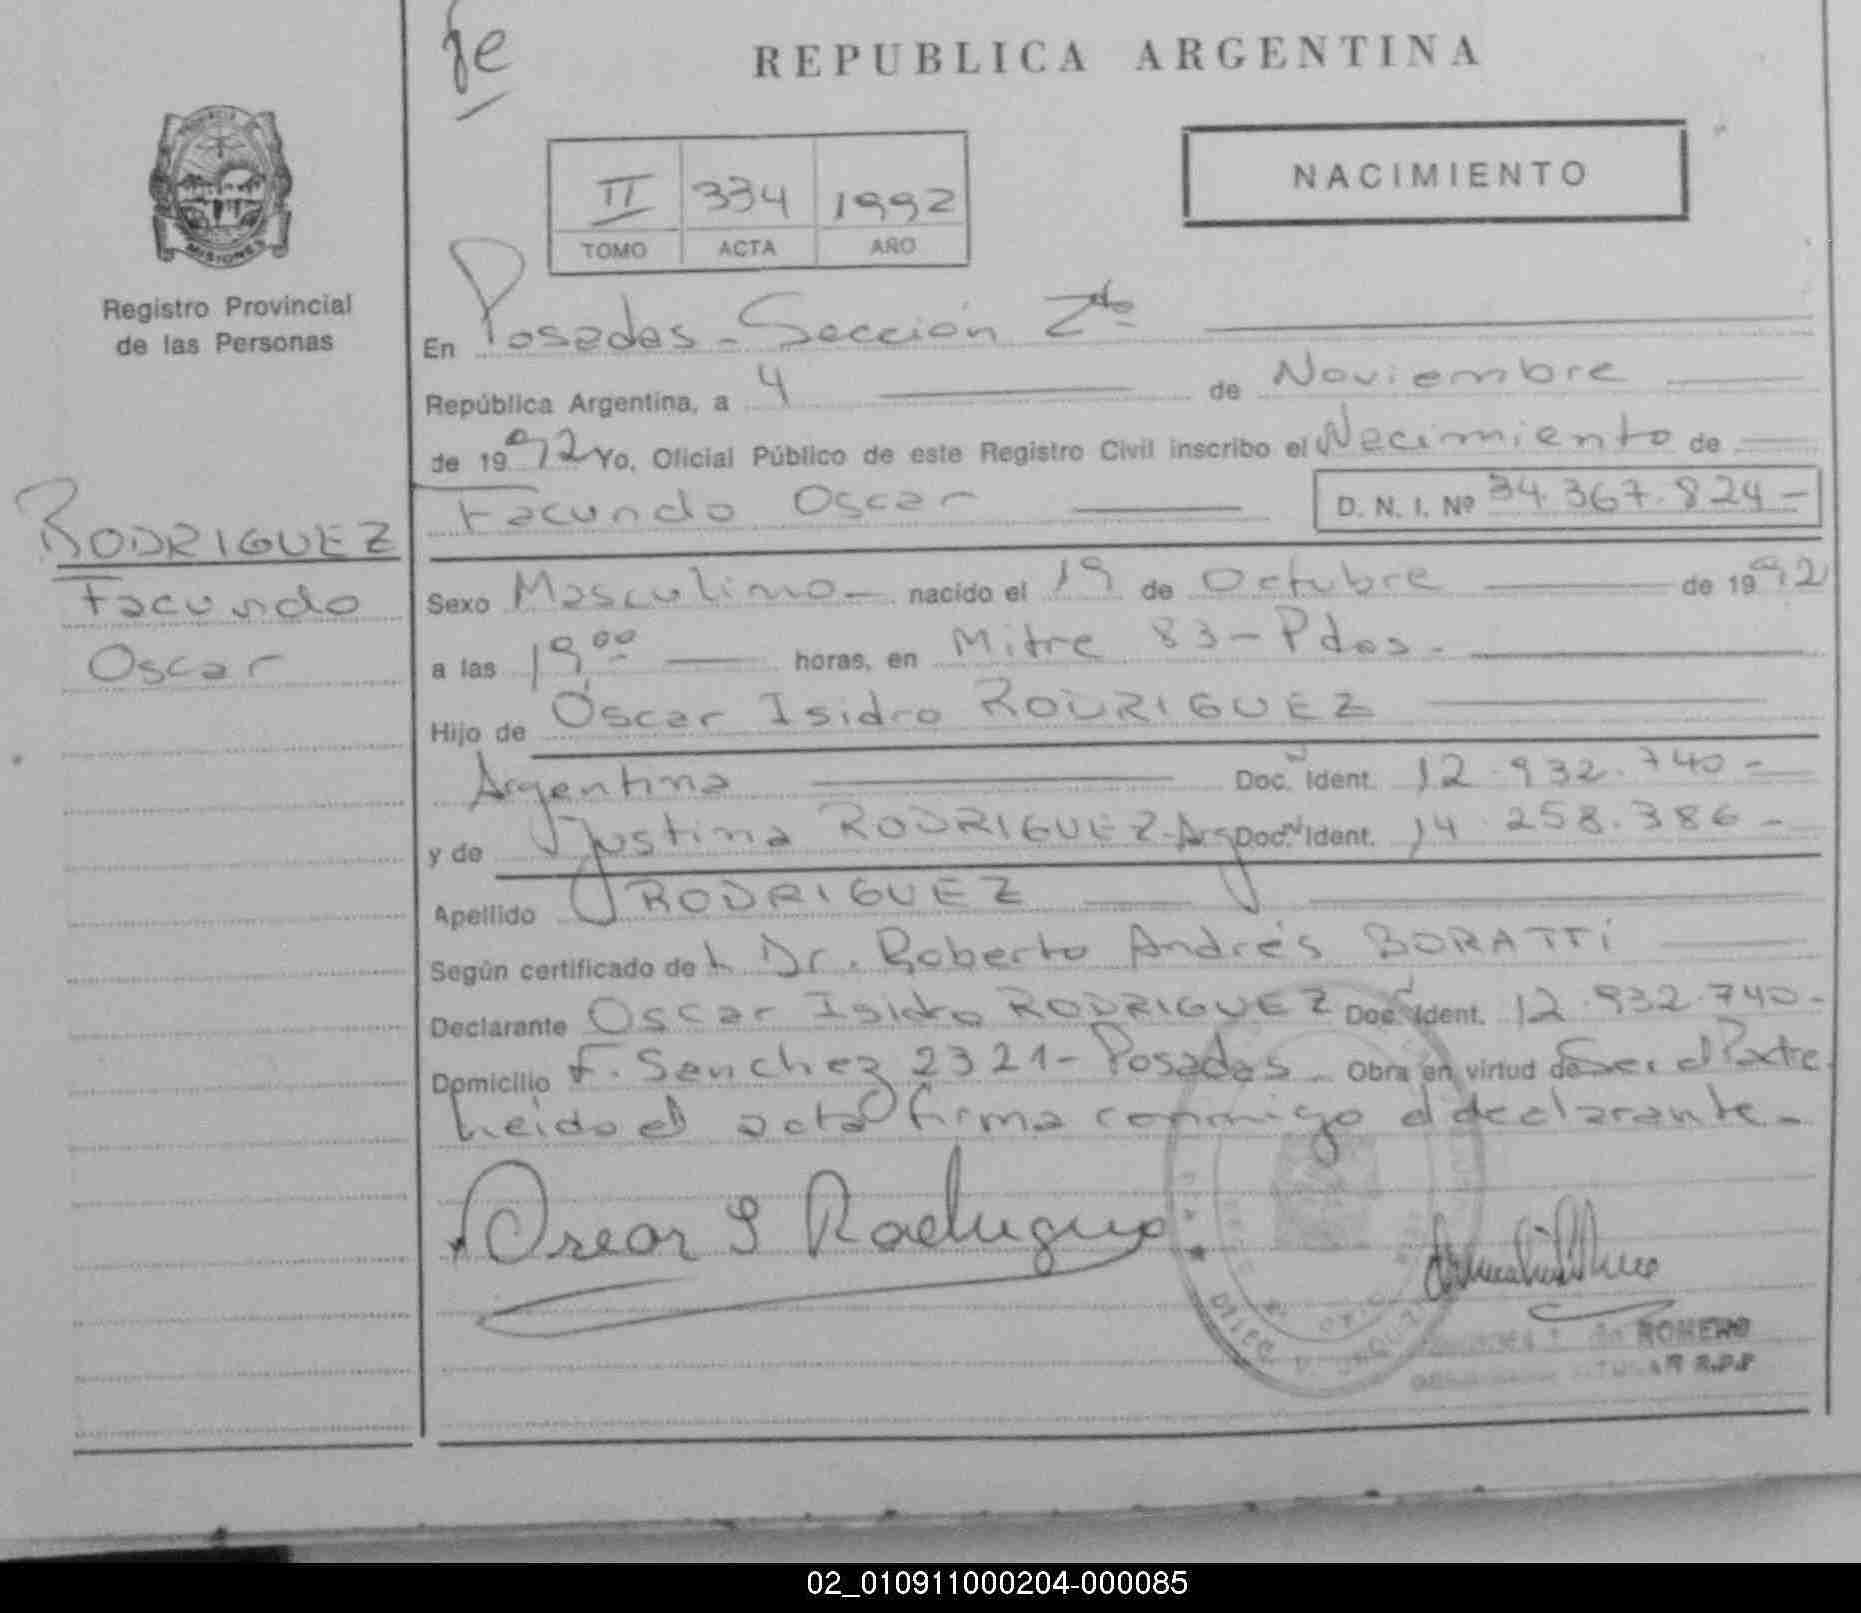 REPUBLICA ARGENTINA
PROVINCIA
MISIONES
Registro Provincial
de las Personas
NACIMIENTO
II 334 1992
TOMO ACTA AÑO
En Posadas - Sección 2da
República Argentina, a 4 de Noviembre
de 1992 Yo, Oficial Público de este Registro Civil inscribo el Nacimiento de
Facundo Oscar D. N. I. Nº 34.367.824-
RODRIGUEZ
Facundo
Oscar
Sexo Masculino - nacido el 19 de Octubre de 1992
a las 19 00 horas, en Mitre 83 - Pdas.
Hijo de Oscar Isidro RODRIGUEZ
Argentina Doc. Ident. 12.932.740-
y de Justina RODRIGUEZ - Arg Doc. Ident. 14.258.386-
Apellido RODRIGUEZ
Según certificado del Dr. Roberto Andrés BORATTI
Declarante Oscar Isidro RODRIGUEZ Doc. Ident. 12.932.740-
Domicilio F. Sanchez 2321 - Posadas - Obra en virtud de Ser el Padre
Leida el acta firma conmigo el declarante -
Oscar I Rodriguez
ROMERO
R.P.P
02_010911000204-000085